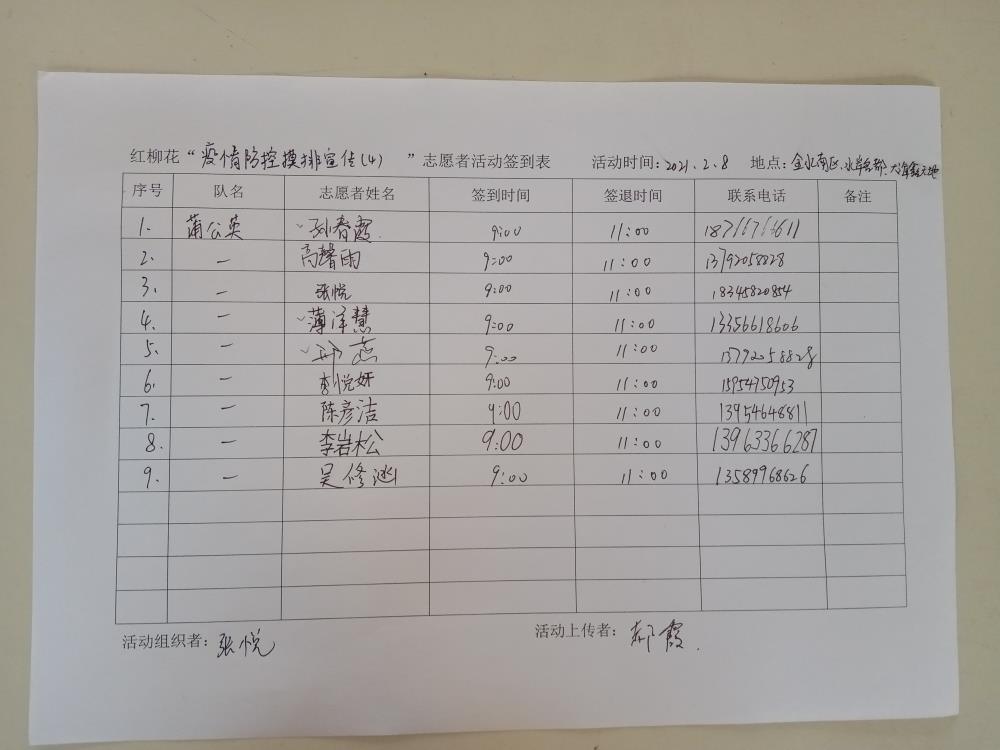 红柳花“疫情防控摸排宣传(4) ”志愿者活动签到表 活动时间：2021.2.8 地点：金水南区、水岸名都、大海鑫天地
序号 队名 志愿者姓名 签到时间 签退时间 联系电话 备注
1. 蒲公英 孙春霞 9:00 11:00
2. — 高馨雨 9:00 11:00 13792058828
3. — 张悦 9:00 11:00 18345820854
4. — 薄泽慧 9:00 11:00 13356618606
5. — 燕 9:00 11:00 13792058828
6. — 李悦妍 9:00 11:00 15954750953
7. — 陈彦洁 9:00 11:00 13954648811
8. — 李岩松 9:00 11:00 13963366287
9. — 吴修 9:00 11:00 13589968626
活动组织者：张悦 活动上传者：郝霞